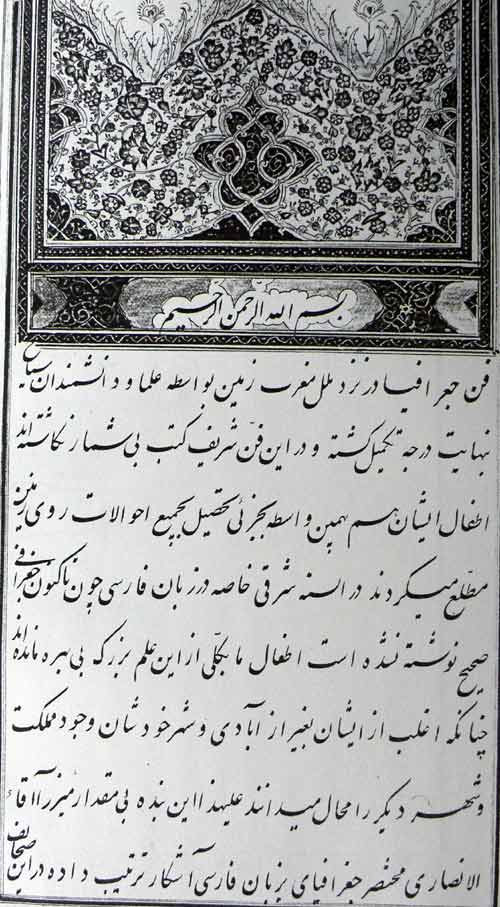 بسم الله الرحمن الرحیم
فن جغرافیا در نزد ملل مغرب زمین بواسطه علما و دانشمندان سیاح
نهایت درجه تکمیل گشته و در این فن شریف کتب بی شمار نگاشته اند
اطفال ایشان هم بهمین واسطه بجزئی تحصیل بجمیع احوالات روی زمین
مطلع میگردند در السنه شرقی خاصه در زبان فارسی چون تاکنون جغرافی
صحیح نوشته نشده است اطفال ما بکلی از این علم بزرگ بی بهره مانده اند
چنانکه اغلب از ایشان بغیر از آبادی و شهر خودشان وجود مملکت
و شهر دیگر را محال میدانند علیهذا این بنده بی مقدار میرزا آقاء
الانصاری مختصر جغرافیای بزبان فارسی آشکار ترتیب داده در این صحائف